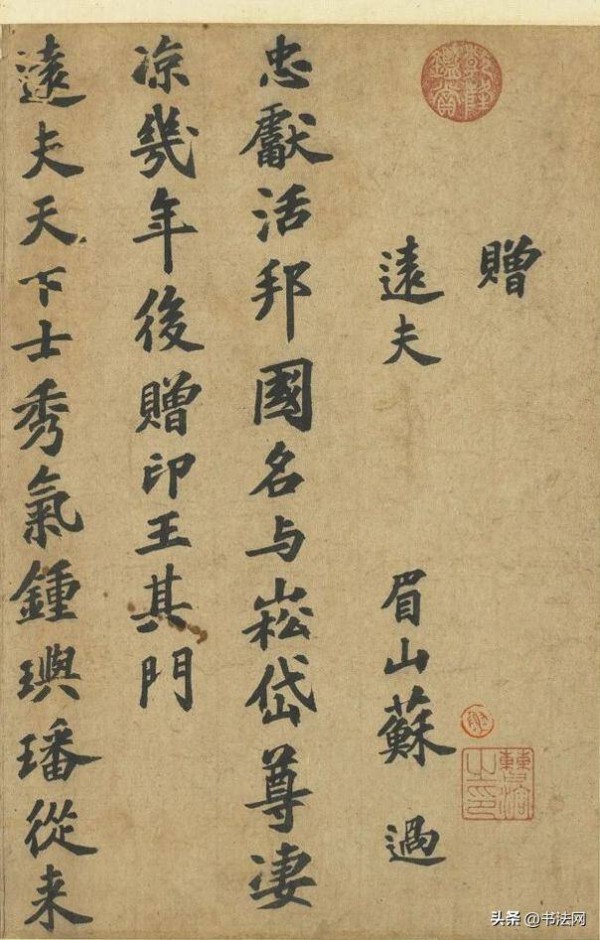 乾隆鑑賞
贈
遠夫 眉山蘇過
忠獻活邦國名与崧岱尊凄
凉幾年後贈印王其門
遠夫天下士秀氣鍾璵璠從来
曹溶之印
头条 @书法网